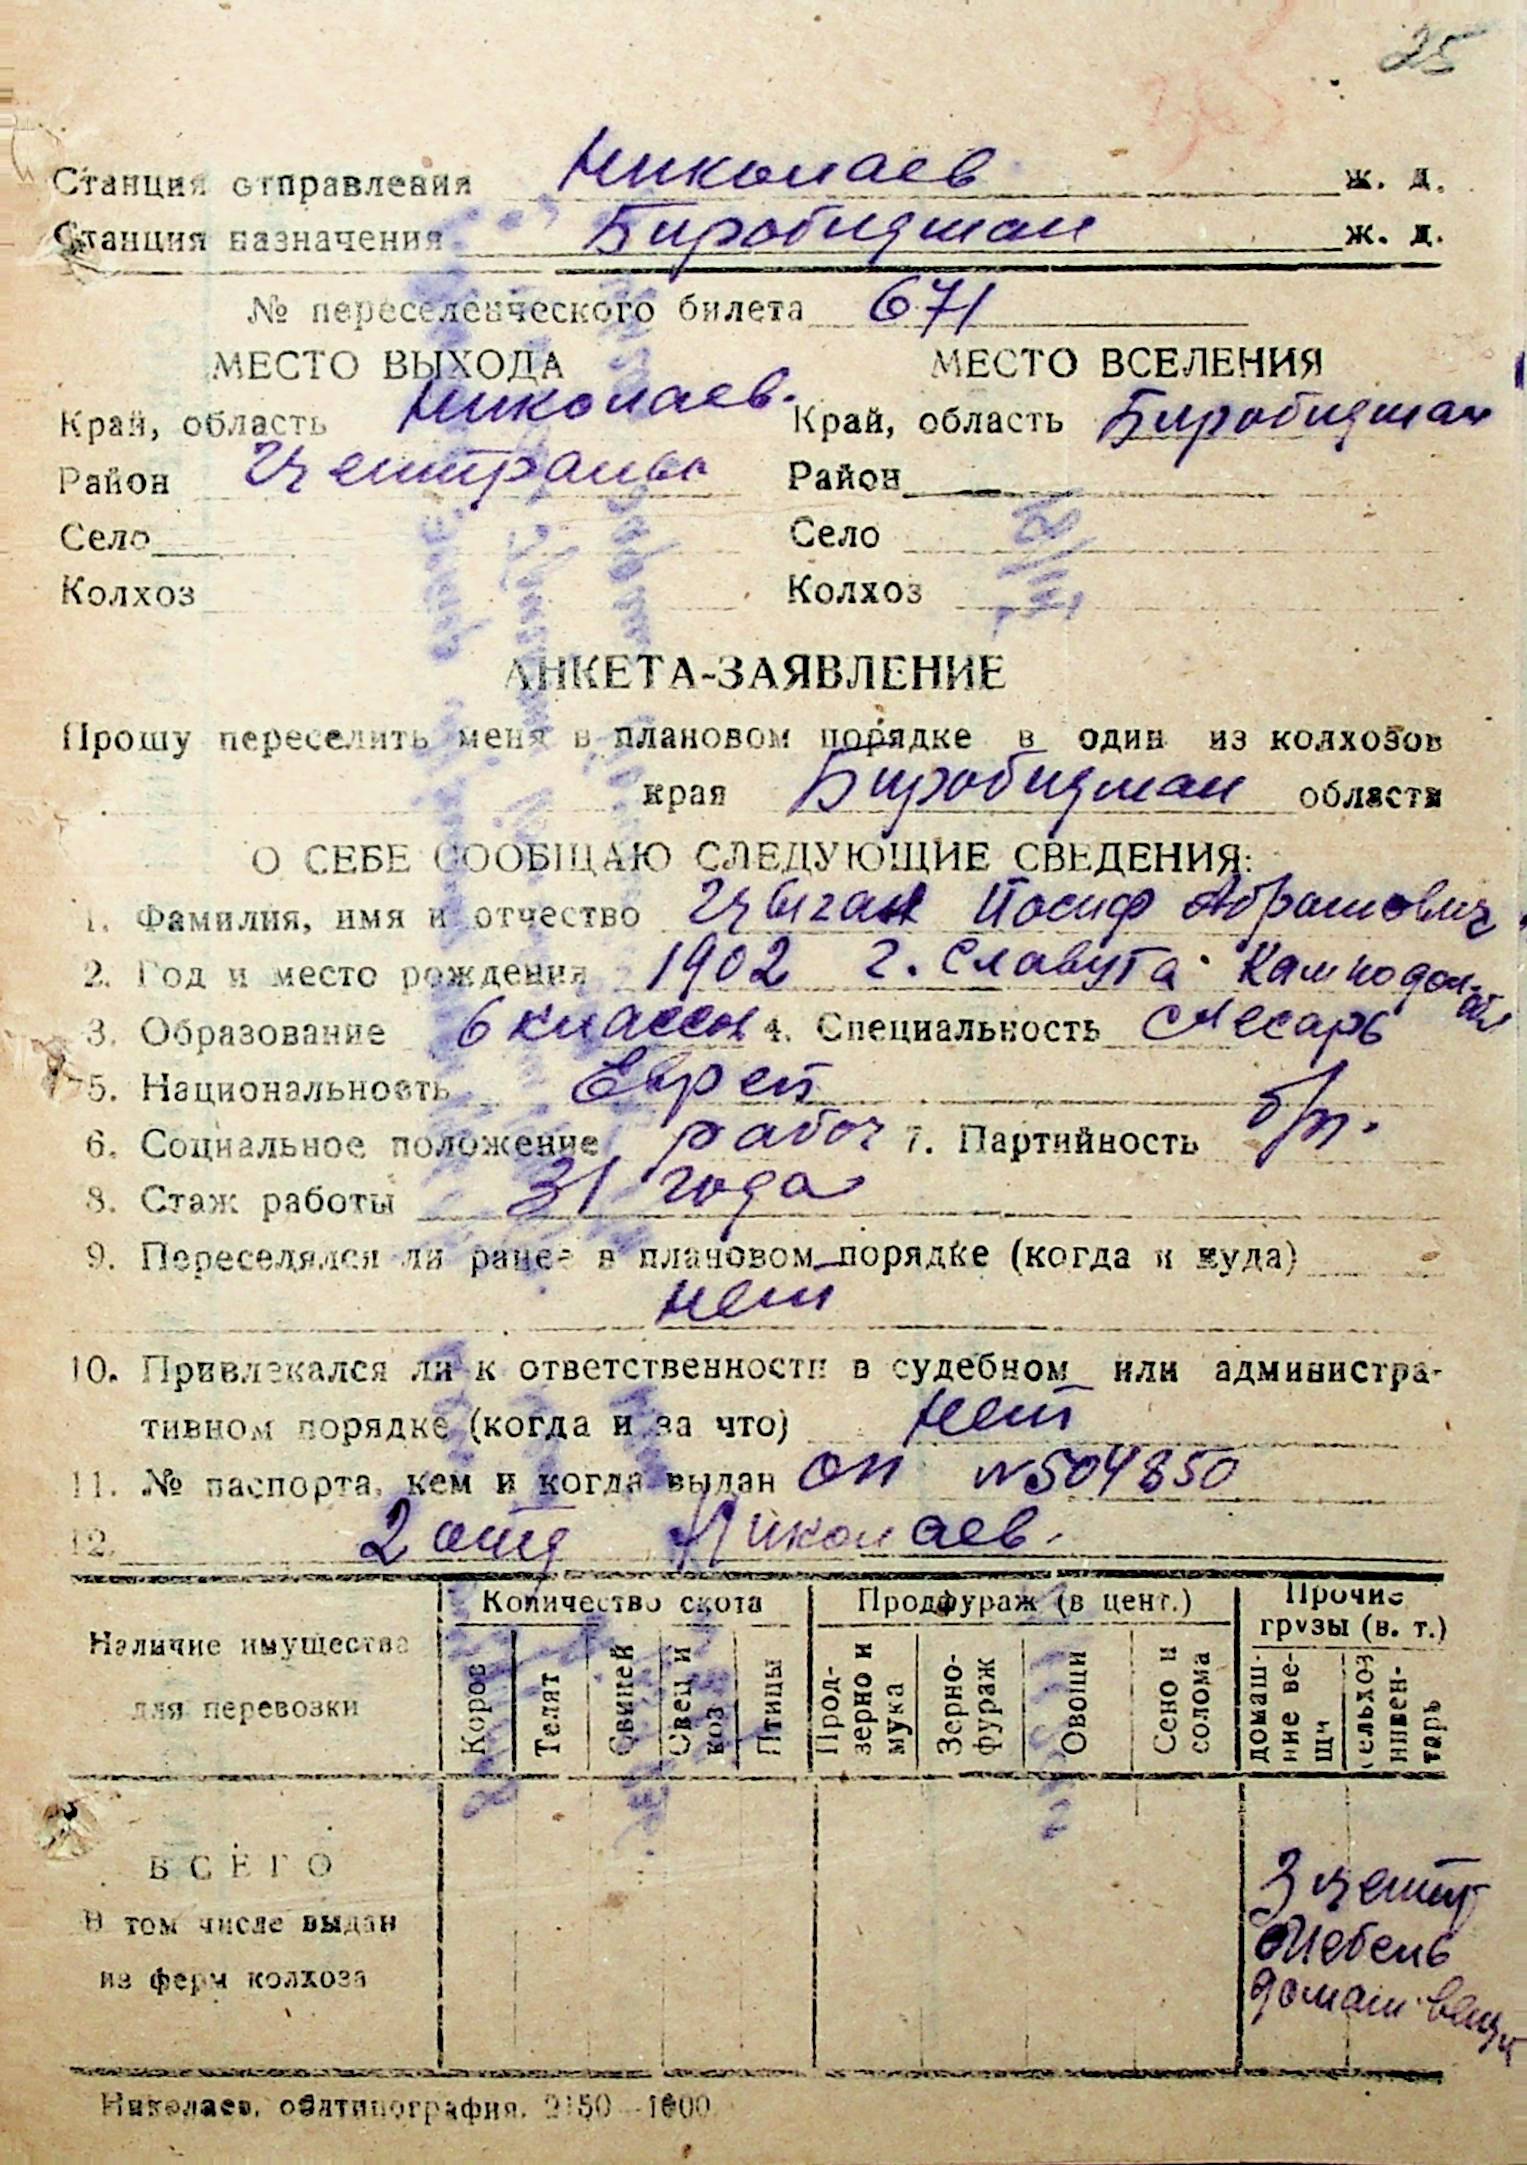 25
Станция отправления Николаев ж. д.
Станция назначения Биробиджан ж. д.
№ переселенческого билета 671
МЕСТО ВЫХОДА МЕСТО ВСЕЛЕНИЯ
Край, область Николаев. Край, область Биробиджан
Район Централь Район
Село Село
Колхоз Колхоз
АНКЕТА-ЗАЯВЛЕНИЕ
Прошу переселить меня в плановом порядке в один из колхозов
края Биробиджан области
О СЕБЕ СООБЩАЮ СЛЕДУЮЩИЕ СВЕДЕНИЯ:
1. Фамилия, имя и отчество Цыган Иосиф Абрамович
2. Год и место рождения 1902 г. Славута Кам подол. обл
3. Образование 6 классов 4. Специальность Слесарь
5. Национальность Еврей
6. Социальное положение рабоч 7. Партийность б/п.
8. Стаж работы 31 года
9. Переселялся ли ранее в плановом порядке (когда и куда)
нет
10. Привлекался ли к ответственности в судебном или администра-
тивном порядке (когда и за что) нет
11. № паспорта, кем и когда выдан № 504850
12. 2 отд Николаев.
Наличие имущества
для перевозки
Количество скота
Продфураж (в цент.)
Прочие
грузы (в. т.)
Коров
Телят
Свиней
Овец и
коз
Птицы
Прод-
зерно и
мука
Зерно-
фураж
Овощи
Сено и
солома
домаш-
ние ве-
щи
сельхоз
инвен-
тарь
ВСЕГО
В том числе выдан
из ферм колхоза
3 цент
Мебель
домаш. вещи
Николаев, облтипография. 2150—1000